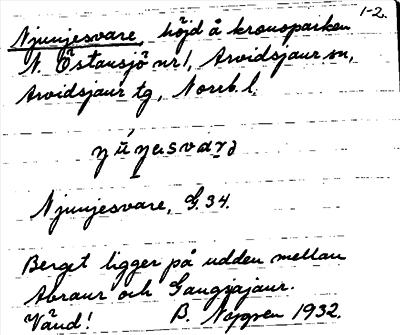 1-2.
Njunjesvare, höjd å kronoparken
N. Östansjö nr 1, Arvidsjaur sn,
Arvidsjaur tg, Norrb. l.
Njunjesvare, G. 34.
Berget ligger på udden mellan
Abraur och Gaugsjajaur.
Vänd! B. Nygren 1932.